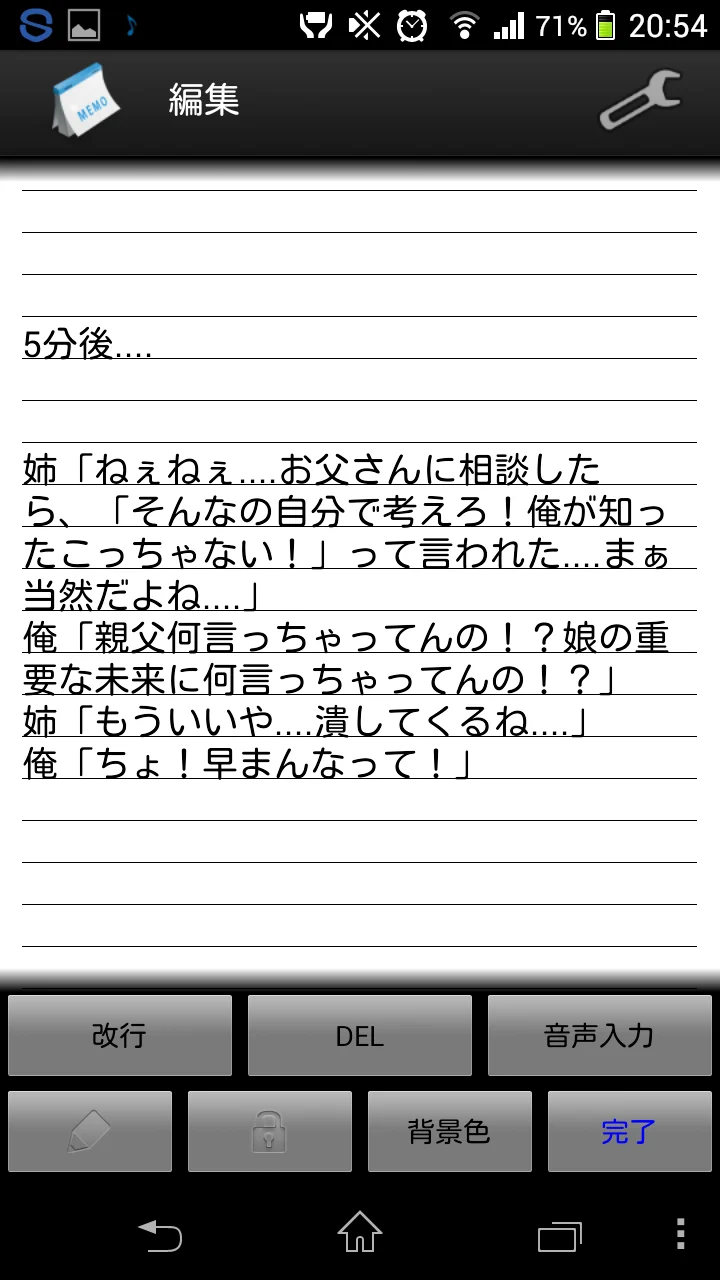 71% 20:54
MEMO 編集
5分後....
姉「ねぇねぇ....お父さんに相談した
ら、「そんなの自分で考えろ！俺が知っ
たこっちゃない！」って言われた....まぁ
当然だよね....」
俺「親父何言っちゃってんの！？娘の重
要な未来に何言っちゃってんの！？」
姉「もういいや....潰してくるね....」
俺「ちょ！早まんなって！」
改行 DEL 音声入力
背景色 完了